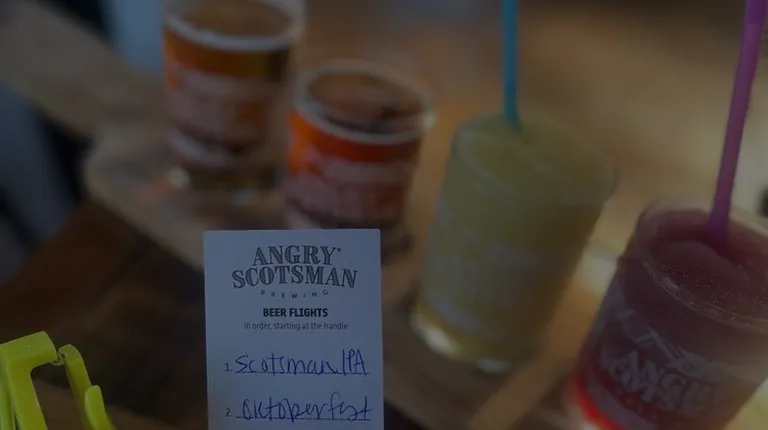 ANGRY
SCOTSMAN
BREWING
BEER FLIGHTS
in order, starting at the handle
1. Scotsman IPA
2. Oktoberfest
ANGRY
SCOTSMAN